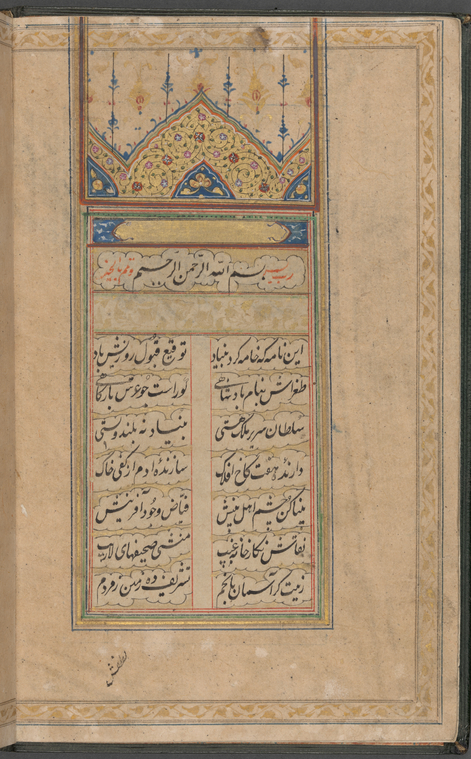 رب یسر بسم الله الرحمن الرحیم و تمم بالخیر
این نامه که خامه کرد بنیاد توقیع قبول روزیش باد
طغراش بنام پادشاهی کوراست چو عرش بارگاهی
سلطان سریر ملک هستی بنیاد نه بلند و پستی
دارنده هفت کاخ افلاک سازنده آدم از کفی خاک
بینا کن چشم اهل بینش فیاض وجود آفرینش
نقاش نگارخانه غیب منشی صحیفهای لاریب
زینت گر آسمان بانجم تشریف ده زمین ز مردم